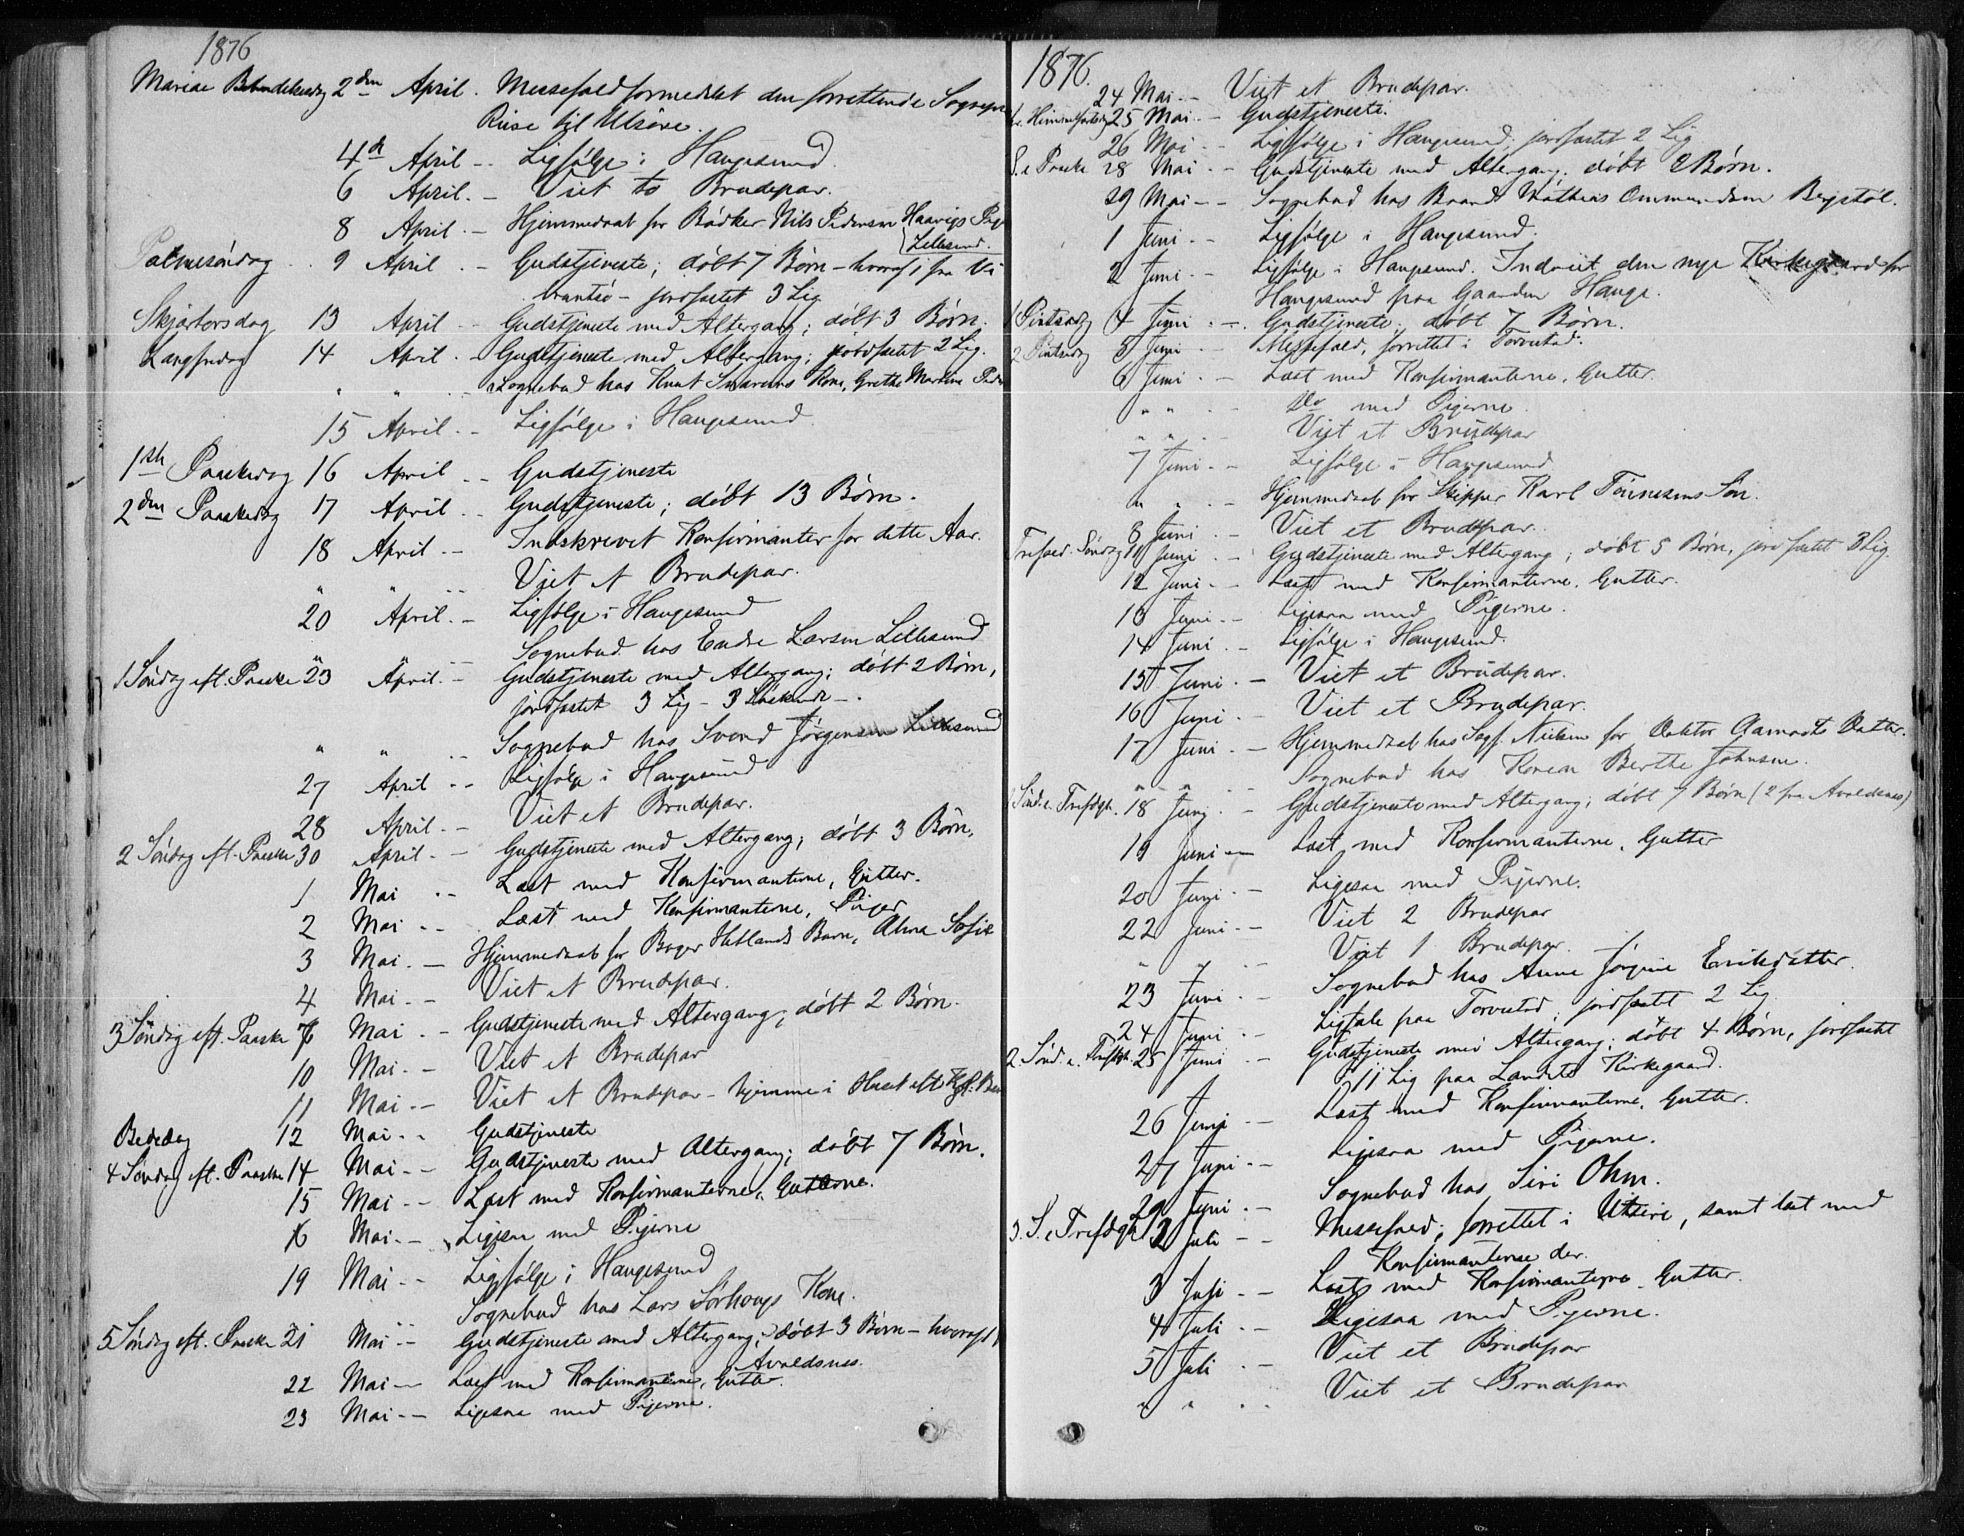 1876
Mariae Bebudelsesdag 2den April. Messefald formedelst den forrettende Sognepr
Reise til Utsire.
4de April -- Ligfølge i Haugesund.
6 April. - Viet to Brudepar.
8 April. - Hjemmedaab for Bødker Nils Pedersen Haavigs Pige
Lillesund.
Palmesøndag .. 9 April - Gudstjeneste; døbt 7 Børn - hvoraf 1 fra Vi
brantsø - jordfæstet 3 Lig
Skjærtorsdag 13 April -- Gudstjeneste med Altergang; døbt 3 Børn.
Langfredag 14 April . - Gudstjeneste med Altergang; jordfæstet 2 Lig.
" " -- Sognebud hos Knut Kone, Grethe Martine
15 April. - Ligfølge i Haugesund
1ste Paaskedag 16 April -- Gudstjeneste
2den Paaskedag 17 April -- Gudstjeneste; døbt 13 Børn.
18 April -- Indskrevet Konfirmanter for dette Aar.
" " -- Viet et Brudepar.
20 April. - Ligfølge i Haugesund
" " -- Sognebud hos Endre Larsen Lillesund
1 Søndag eft. Paaske 23 April. - Gudstjeneste med Altergang; døbt 2 Børn,
jordfæstet 3 Lig - 3
" " -- Sognebud hos Svend Jørgensen Lillesund
27 April -- Ligfølge i Haugesund
28 April. - Viet et Brudepar.
2 Søndag eft. Paaske 30 April. - Gudstjeneste med Altergang; døbt 3 Børn.
1 Mai -- Læst med Konfirmanterne, Gutter.
2 Mai -- Læst med Konfirmanterne, Piger
3 Mai. - Hjemmedaab for Bager Hetlands Barn, Alma Sofie
4 Mai. - Viet et Brudepar.
3 Søndag eft. Paaske 7 Mai. - Gudstjeneste med Altergang; døbt 2 Børn.
10 Mai. - Viet et Brudepar
11 Mai. - Viet et Brudepar - hjemme i Huset eft. Kgl. Bev
Bededag 12 Mai. - Gudstjeneste
4 Søndag eft. Paaske 14 Mai. - Gudstjeneste med Altergang; døbt 7 Børn.
15 Mai -- Læst med Konfirmanterne, Gutterne.
16 Mai. - Ligesaa med Pigerne
19 Mai -- Ligfølge i Haugesund
" " -- Sognebud hos Lars Sørhougs Kone.
5 Søndag eft. Paaske 21 Mai -- Gudstjeneste med Altergang; døbt 3 Børn - hvoraf 1
Avaldsnes.
22 Mai -- Læst med Konfirmanterne, Gutter.
23 Mai -- Ligesaa med Pigerne.
1876.
24 Mai. - Viet et Brudepar.
Kr. Himmelfartsdag 25 Mai. - Gudstjeneste.
26 Mai. - Ligfølge i Haugesund, jordfæstet 2 Lig
S. e. Paaske 28 Mai. - Gudstjeneste med Altergang. døbt 2 Børn.
29 Mai -- Sognebud hos Mathias Ommundsen
1 Juni. - Ligfølge i Haugesund.
2 Juni. - Ligfølge i Haugesund. Indviet den nye Kirkegaard for
Haugesund paa Gaarden Hauge.
1 Pintsedag 4 Juni . - . Gudstjeneste, døbt 7 Børn.
2 Pintsedag 5 Juni . - Messefald, forrettet i Torvestad.
6 Juni . - Læst med Konfirmanterne, Gutter.
" " . - Do med Pigerne.
" " . - Viet et Brudepar
7 Juni. - Ligfølge i Haugesund
" " . - Hjemmedaab for Skipper Karl Tønnesens Søn.
8 Juni . - Viet et Brudepar.
Trefold. Søndag 11 Juni . - Gudstjeneste med Altergang; døbt 5 Børn, jordfæstet 3 Lig
12 Juni - Læst med Konfirmanterne, Gutter.
13 Juni. - Ligesaa med Pigerne.
14 Juni . - Ligfølge i Haugesund.
15 Juni . - Viet et Brudepar.
16 Juni . - Viet et Brudepar.
17 Juni . - Hjemmedaab hos Sagf. Nielsen for Doktor Aamodts Datter.
" " . Sognebud hos Konen Berthe Johnsen.
1 Sønd. e. Trefdgh. 18 Juni . - Gudstjeneste med Altergang; døbt 7 Børn (2 fra Avaldsnes)
19 Juni - Læst med Konfirmanterne, Gutter
20 Juni . - Ligesaa med Pigerne.
22 Juni - - Viet 2 Brudepar
" " . . Viet 1 Brudepar.
23 Juni . - Sognebud hos Anne Jørgine Eriksdatter.
24 Juni . - Ligtale paa Torvestad; jordfæstet 2 Lig
2 Sønd. e. Trefdgh. 25 Juni . - Gudstjeneste med Altergang; døbt 4 Børn, jordfæstet
11 Lig paa Landets Kirkegaard.
26 Juni . - Læst med Konfirmanterne, Gutter.
27 Juni . - Ligesaa med Pigerne.
29 Juni . - Sognebud hos Siri Ohm.
3. S. e. Trefdgh. 2 Juli - - Messefald; forrettet i Utsire, samt læst med
Konfirmanterne der.
3 Juli . - Læst med Konfirmanterne. Gutter.
4 Juli . - Ligesaa med Pigerne.
5 Juli . - Viet et Brudepar
" " . . Viet et Brudepar